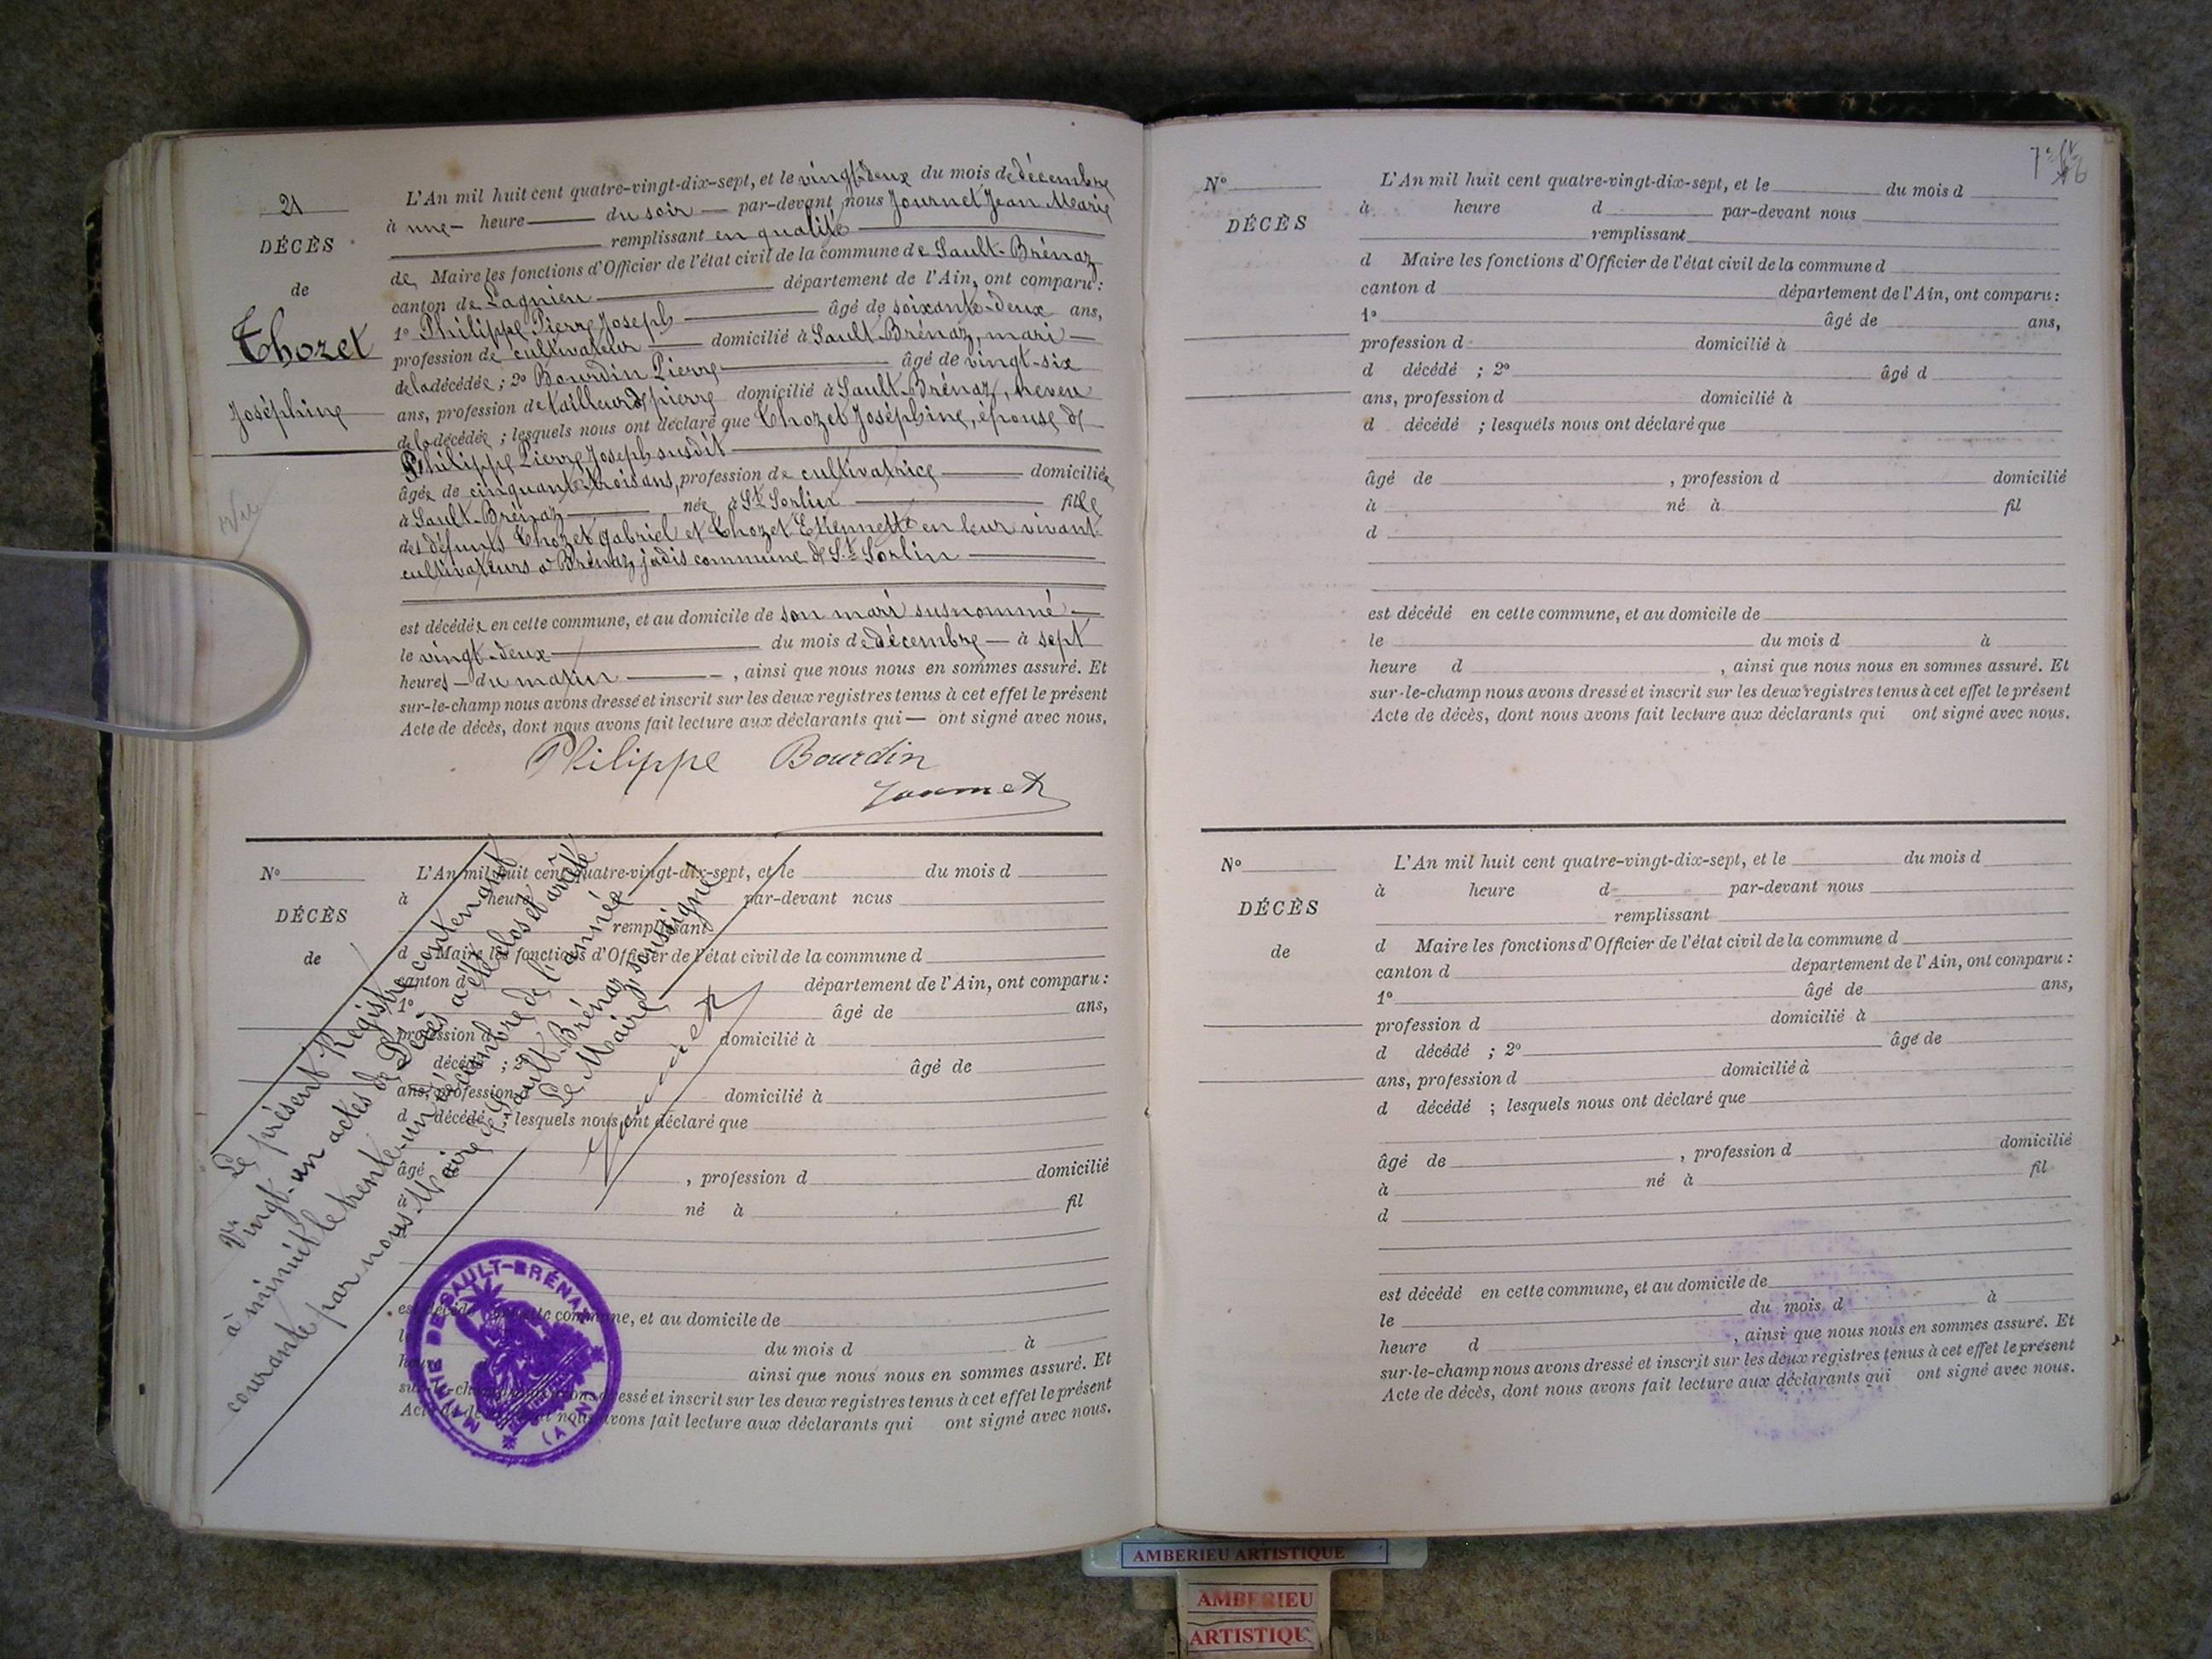 21
DÉCÈS
de
Thozet
Joséphine
L'An mil huit cent quatre-vingt-dix-sept, et le vingt-deux du mois de décembre
à une heure du soir par-devant nous Journet Jean Marie
remplissant en qualité
de Maire les fonctions d'Officier de l'état civil de la commune de Sault-Brénaz
canton de Lagnieu département de l'Ain, ont comparu :
1º Philippe Pierre Joseph âgé de soixante-deux ans,
profession de cultivateur domicilié à Sault-Brénaz, mari
de la décédée ; 2º Bourdin Pierre âgé de vingt-six
ans, profession de tailleur de pierre domicilié à Sault-Brénaz, neveu
de la décédée ; lesquels nous ont déclaré que Thozet Joséphine, épouse de
Philippe Pierre Joseph susdit
âgée de cinquante-trois ans, profession de cultivatrice domiciliée
à Sault-Brénaz née à St Sorlin fille
des défunts Thozet Gabriel et Thozet Etiennette en leur vivant
cultivateurs à Brénaz jadis commune de St Sorlin
est décédée en cette commune, et au domicile de son mari susnommé
le vingt-deux du mois de décembre à sept
heures du matin , ainsi que nous nous en sommes assuré. Et
sur-le-champ nous avons dressé et inscrit sur les deux registres tenus à cet effet le présent
Acte de décès, dont nous avons fait lecture aux déclarants qui ont signé avec nous.
Philippe Bourdin
Journet
Nº
DÉCÈS
de
L'An mil huit cent quatre-vingt-dix-sept, et le du mois d
à heure par-devant nous
remplissant
d Maire les fonctions d'Officier de l'état civil de la commune d
canton d département de l'Ain, ont comparu :
1º âgé de ans,
profession d domicilié à
d décédé ; 2º âgé de
ans, profession domicilié à
d décédé ; lesquels nous ont déclaré que
âgé , profession d domicilié
à né à fil
est décédé en cette commune, et au domicile de
le du mois d à
heure ainsi que nous nous en sommes assuré. Et
sur-le-champ nous avons dressé et inscrit sur les deux registres tenus à cet effet le présent
Acte de décès, dont nous avons fait lecture aux déclarants qui ont signé avec nous.
Le présent Registre contenant
Vingt-un actes de Décès a été clos et arrêté
à minuit le trente-un décembre de l'année
courante par nous Maire de Sault-Brénaz soussigné
Le Maire
Journet
MAIRIE DE SAULT-BRÉNAZ
(AIN)
Nº
DÉCÈS
L'An mil huit cent quatre-vingt-dix-sept, et le du mois d
à heure d par-devant nous
remplissant
d Maire les fonctions d'Officier de l'état civil de la commune d
canton d département de l'Ain, ont comparu :
1º âgé de ans,
profession d domicilié à
d décédé ; 2º âgé d
ans, profession d domicilié à
d décédé ; lesquels nous ont déclaré que
âgé de , profession d domicilié
à né à fil
d
est décédé en cette commune, et au domicile de
le du mois d à
heure d , ainsi que nous nous en sommes assuré. Et
sur-le-champ nous avons dressé et inscrit sur les deux registres tenus à cet effet le présent
Acte de décès, dont nous avons fait lecture aux déclarants qui ont signé avec nous.
Nº
DÉCÈS
de
L'An mil huit cent quatre-vingt-dix-sept, et le du mois d
à heure d par-devant nous
remplissant
d Maire les fonctions d'Officier de l'état civil de la commune d
canton d département de l'Ain, ont comparu :
1º âgé de ans,
profession d domicilié à
d décédé ; 2º âgé de
ans, profession d domicilié à
d décédé ; lesquels nous ont déclaré que
âgé de , profession d domicilié
à né à fil
d
est décédé en cette commune, et au domicile de
le du mois d à
heure d , ainsi que nous nous en sommes assuré. Et
sur-le-champ nous avons dressé et inscrit sur les deux registres tenus à cet effet le présent
Acte de décès, dont nous avons fait lecture aux déclarants qui ont signé avec nous.
AMBERIEU ARTISTIQUE
AMBERIEU
ARTISTIQU